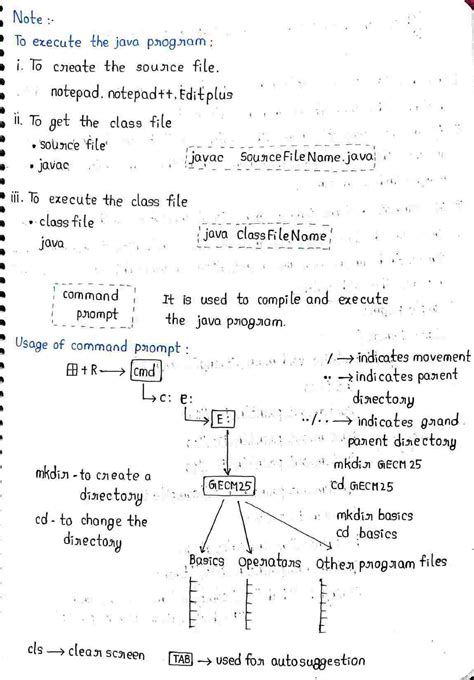 Note :-
To execute the java program :
i. To create the source file.
notepad, notepad++, Editplus
ii. To get the class file
• source file
• javac
javac SourceFileName.java
iii. To execute the class file
• class file
java
java ClassFileName
command prompt
It is used to compile and execute
the java program.
Usage of command prompt :
⊞ + R → cmd
c: e:
E:
/ → indicates movement
.. → indicates parent
directory
../.. → indicates grand
parent directory
mkdir GECM25
cd GECM25
mkdir basics
cd basics
mkdir - to create a
directory
cd - to change the
directory
GECM25
Basics Operators Other program files
cls → clear screen
TAB → used for autosuggestion